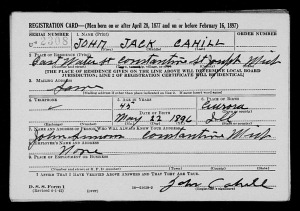 REGISTRATION CARD—(Men born on or after April 28, 1877 and on or before February 16, 1897)
SERIAL NUMBER 1. NAME (Print) ORDER NUMBER
U JOHN JACK CAHILL
2. PLACE OF RESIDENCE (Print)
East Water St Constantine St Joseph Mich
[THE PLACE OF RESIDENCE GIVEN ON THE LINE ABOVE WILL DETERMINE LOCAL BOARD
JURISDICTION; LINE 2 OF REGISTRATION CERTIFICATE WILL BE IDENTICAL]
3. MAILING ADDRESS
Same
4. TELEPHONE 5. AGE IN YEARS 6. PLACE OF BIRTH
45 Aurora
DATE OF BIRTH
May 22 1896 Ill
7. NAME AND ADDRESS OF PERSON WHO WILL ALWAYS KNOW YOUR ADDRESS
John Constantine Mich
8. EMPLOYER'S NAME AND ADDRESS
None
9. PLACE OF EMPLOYMENT OR BUSINESS
I AFFIRM THAT I HAVE VERIFIED ABOVE ANSWERS AND THAT THEY ARE TRUE.
D. S. S. Form 1
John Cahill